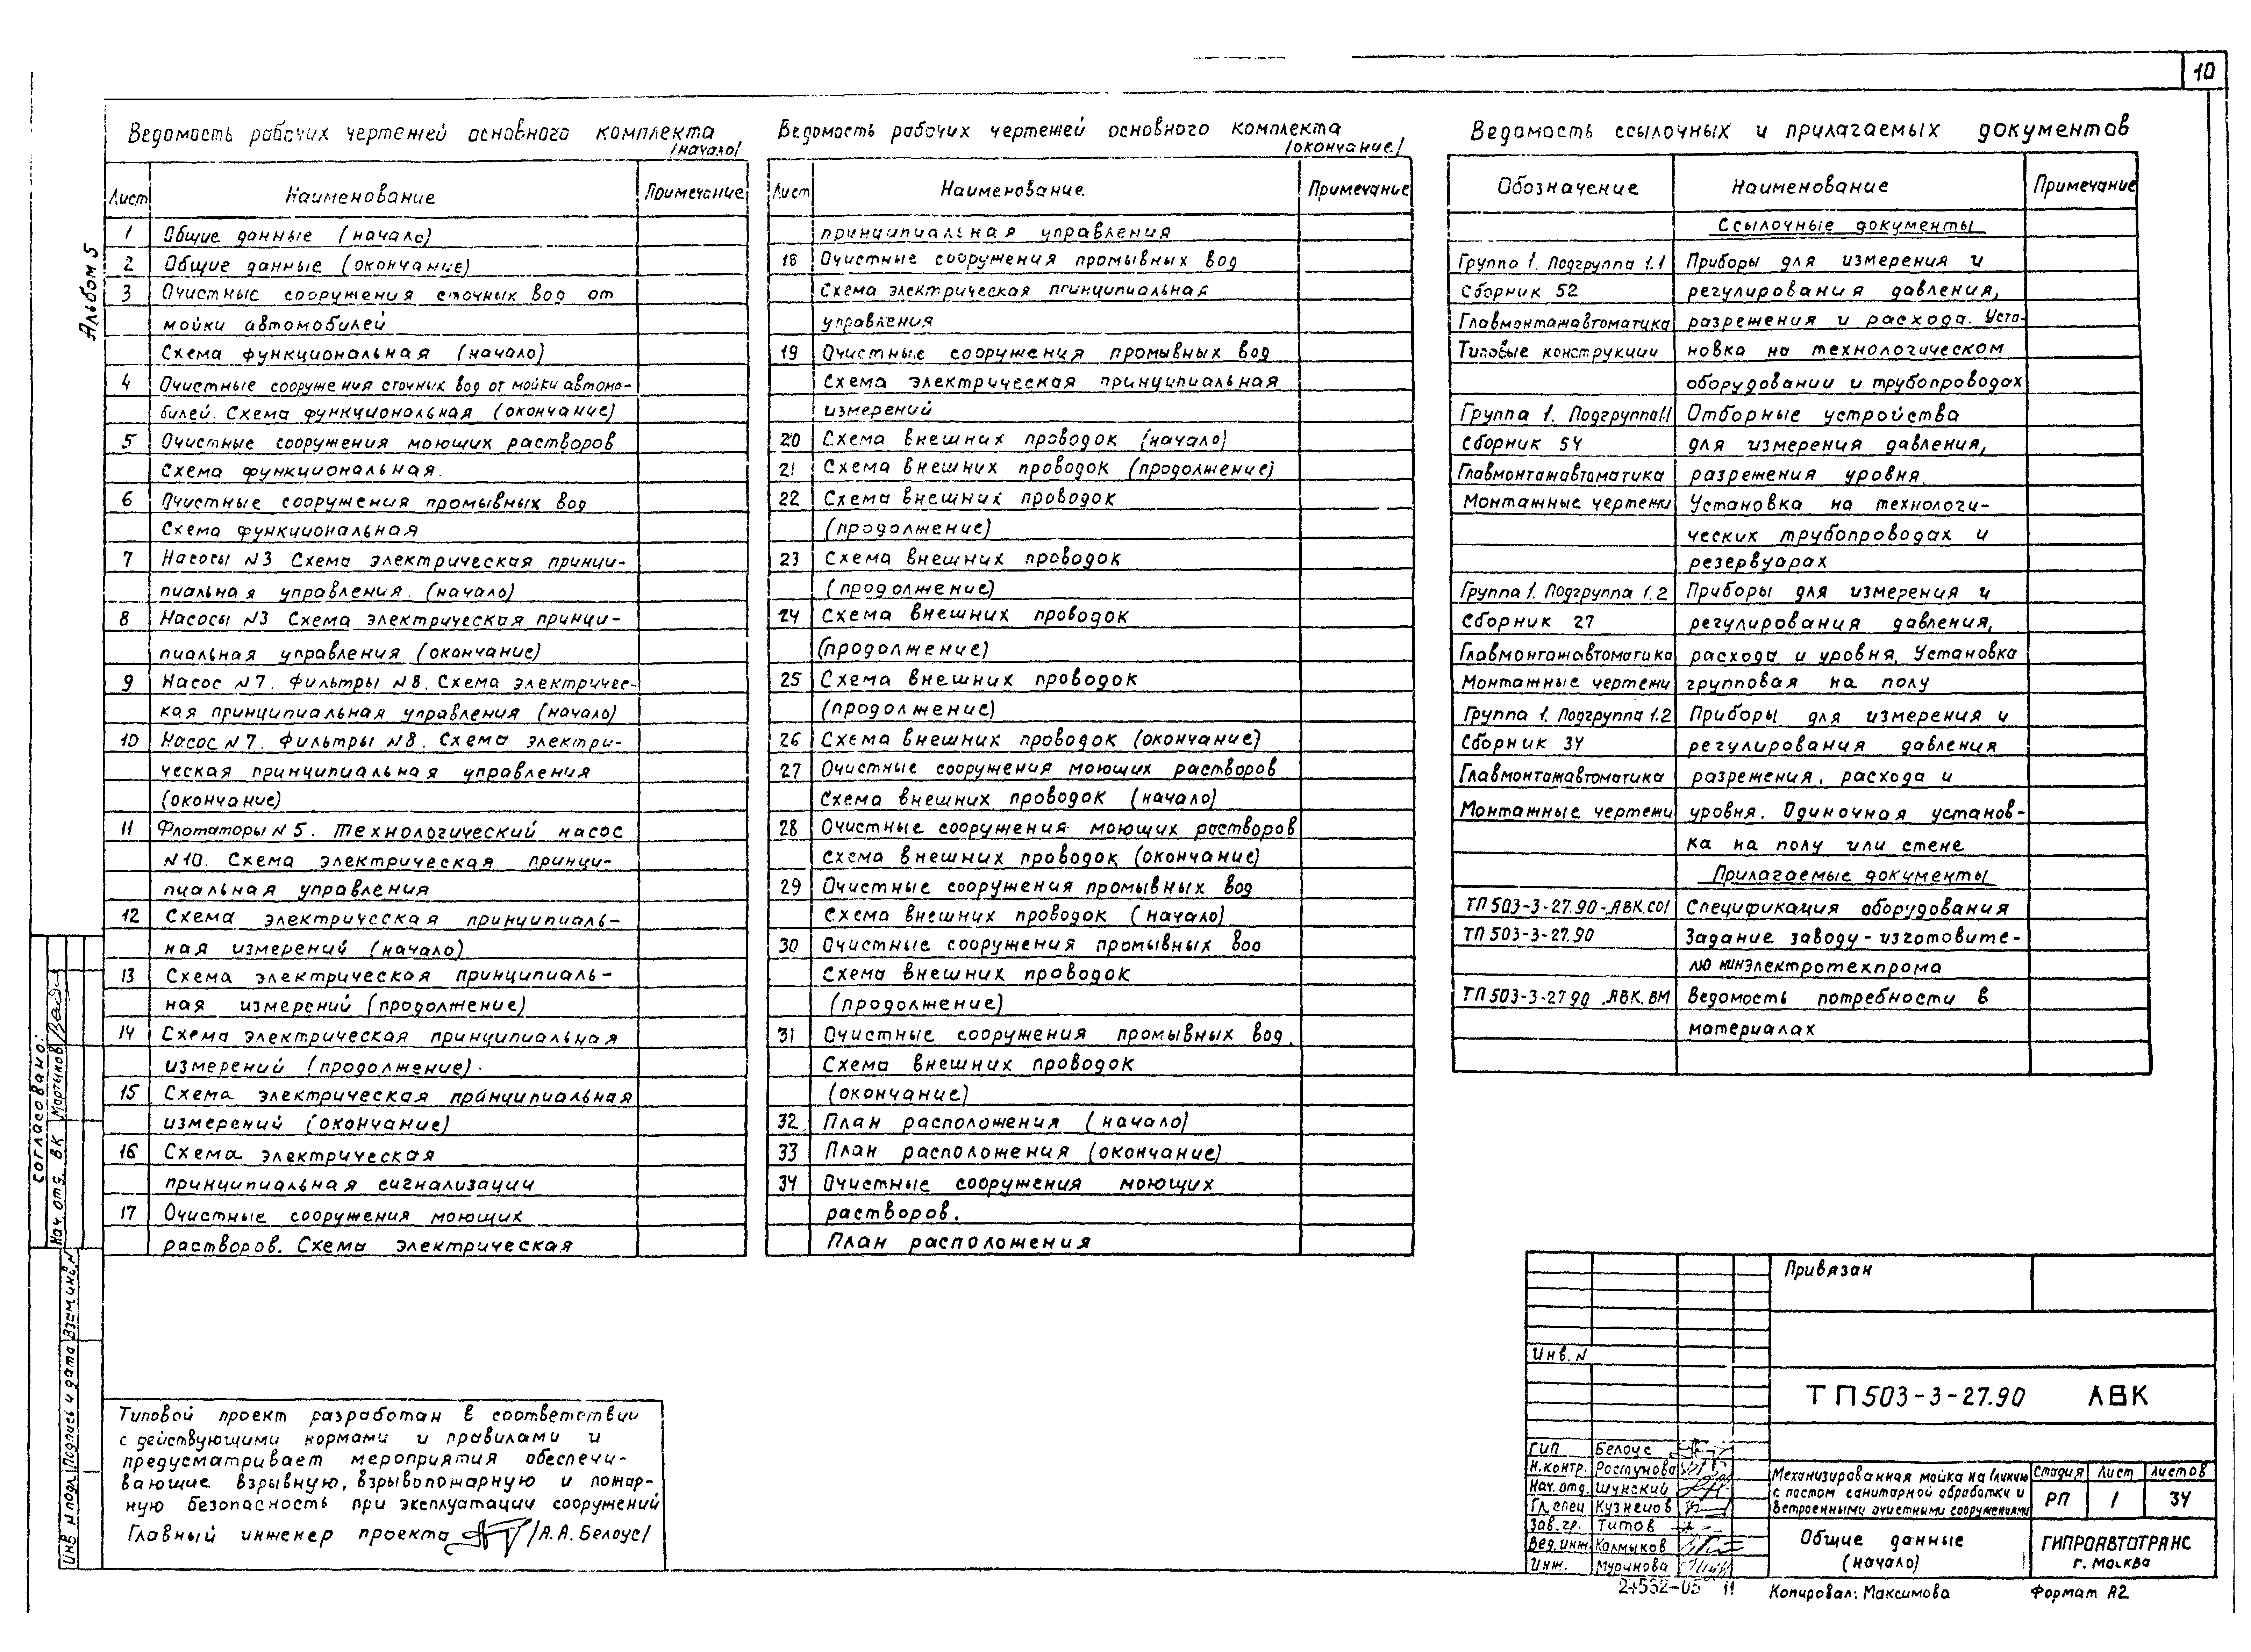 10
Альбом 5
Ведомость рабочих чертежей основного комплекта
(начало)
Лист Наименование Примечание
1 Общие данные (начало)
2 Общие данные (окончание)
3 Очистные сооружения сточных вод от
мойки автомобилей
Схема функциональная (начало)
4 Очистные сооружения сточных вод от мойки автомо-
билей. Схема функциональная (окончание)
5 Очистные сооружения моющих растворов
Схема функциональная.
6 Очистные сооружения промывных вод
Схема функциональная
7 Насосы N3 Схема электрическая принци-
пиальная управления. (начало)
8 Насосы N3 Схема электрическая принци-
пиальная управления (окончание)
9 Насос N7. Фильтры N8. Схема электричес-
кая принципиальная управления (начало)
10 Насос N7. Фильтры N8. Схема электри-
ческая принципиальная управления
(окончание)
11 Флотаторы N5. Технологический насос
N10. Схема электрическая принци-
пиальная управления
12 Схема электрическая принципиаль-
ная измерений (начало)
13 Схема электрическая принципиаль-
ная измерений (продолжение)
14 Схема электрическая принципиальная
измерений (продолжение).
15 Схема электрическая принципиальная
измерений (окончание)
16 Схема электрическая
принципиальная сигнализации
17 Очистные сооружения моющих
растворов. Схемы электрическая
Ведомость рабочих чертежей основного комплекта
(окончание)
Лист Наименование Примечание
принципиальная управления
18 Очистные сооружения промывных вод
Схема электрическая принципиальная
управления
19 Очистные сооружения промывных вод
Схема электрическая принципиальная
измерений
20 Схема внешних проводок (начало)
21 Схема внешних проводок (продолжение)
22 Схема внешних проводок
(продолжение)
23 Схема внешних проводок
(продолжение)
24 Схема внешних проводок
(продолжение)
25 Схема внешних проводок
(продолжение)
26 Схема внешних проводок (окончание)
27 Очистные сооружения моющих растворов
Схема внешних проводок (начало)
28 Очистные сооружения моющих растворов
Схема внешних проводок (окончание)
29 Очистные сооружения промывных вод
Схема внешних проводок (начало)
30 Очистные сооружения промывных вод
Схема внешних проводок
(продолжение)
31 Очистные сооружения промывных вод.
Схема внешних проводок
(окончание)
32 План расположения (начало)
33 План расположения (окончание)
34 Очистные сооружения моющих
растворов.
План расположения
Ведомость ссылочных и прилагаемых документов
Обозначение Наименование Примечание
Ссылочные документы
Группа 1. Подгруппа 1.1 Приборы для измерения и
Сборник 52 регулирования давления,
Главмонтажавтоматика разрежения и расхода. Уста-
Типовые конструкции новка на технологическом
оборудовании и трубопроводах
Группа 1. Подгруппа 1.1 Отборные устройства
Сборник 54 для измерения давления,
Главмонтажавтоматика разрежения уровня.
Монтажные чертежи Установка на технологи-
ческих трубопроводах и
резервуарах
Группа 1. Подгруппа 1.2 Приборы для измерения и
Сборник 27 регулирования давления,
Главмонтажавтоматика расхода и уровня. Установка
Монтажные чертежи групповая на полу
Группа 1. Подгруппа 1.2 Приборы для измерения и
Сборник 34 регулирования давления
Главмонтажавтоматика разрежения, расхода и
Монтажные чертежи уровня. Одиночная установ-
ка на полу или стене
Прилагаемые документы
ТП 503-3-27.90-АВК.СО1 Спецификация оборудования
ТП 503-3-27.90 Задание заводу-изготовите-
лю минэлектротехпрома
ТП 503-3-27 90 .АВК.ВМ Ведомость потребности в
материалах
согласовано:
Нач. отд. ВК Мартынов
Взам инв. N
Подпись и дата
Инв N подл
Типовой проект разработан в соответствии
с действующими нормами и правилами и
предусматривает мероприятия обеспечи-
вающие взрывную, взрывопожарную и пожар-
ную безопасность при эксплуатации сооружений
Главный инженер проекта /А.А. Белоус/
Привязан
Инв. N
ТП 503-3-27.90 АВК
ГИП Белоус
Н.контр.Ростунова
Нач. отд. Шунский
Гл. спец Кузнецов
Зав. гр. Титов
Вед. инж. Калмыков
Инж. Муринова
Механизированная мойка на 1 линию
с постом санитарной обработки и
встроенными очистными сооружениями
Стадия Лист Листов
РП 1 34
Общие данные
(начало)
ГИПРОАВТОТРАНС
г. Москва
24532-05 11
Копировал: Максимова
Формат А2